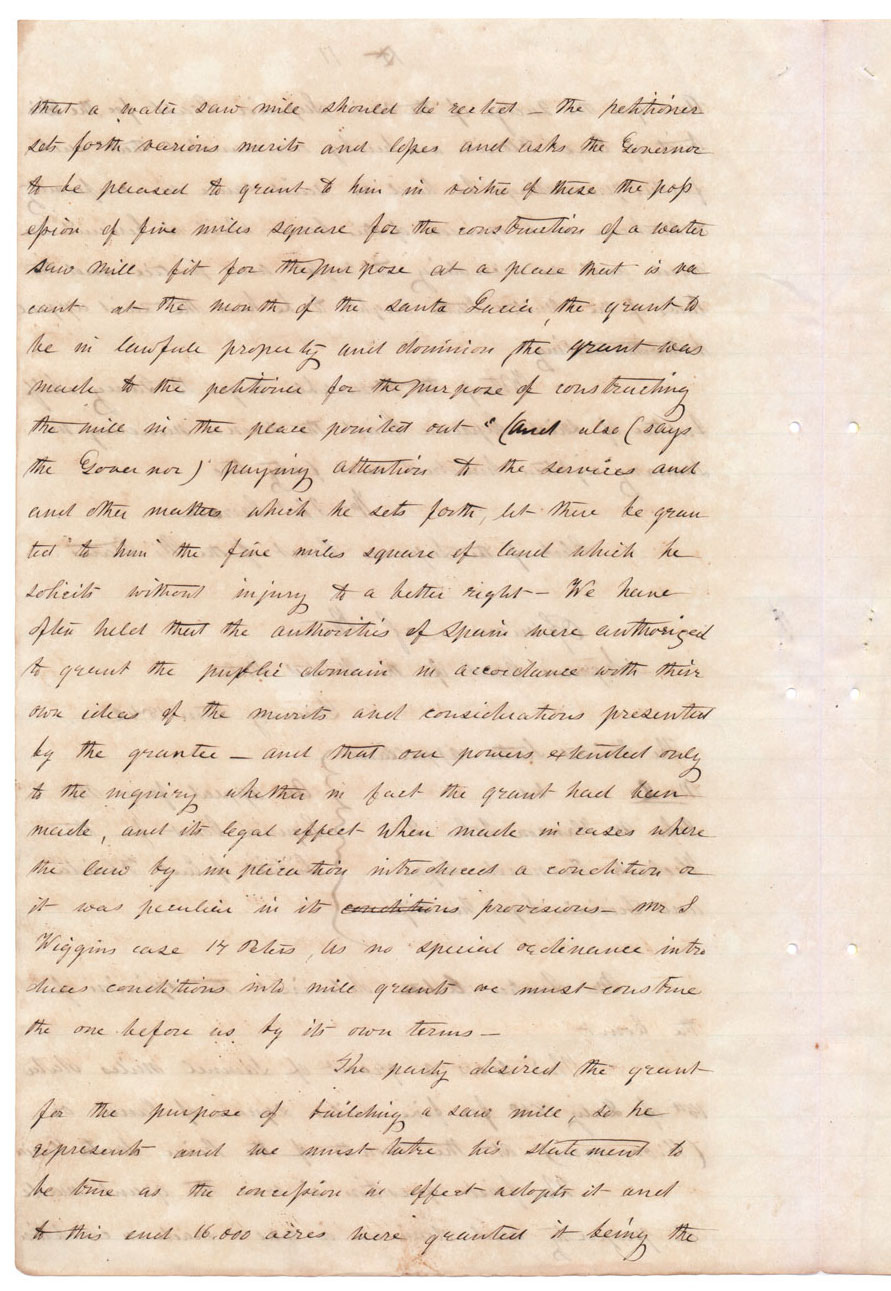 that a water saw mile should be rected – the petitioner
sets forth various merits and loses and asks the Governor
to be pleased to grant to him in virtue of these the pos
ession of five miles square for the construction of a water
saw mill fit for the purpose at a place that is va
cant at the mouth of the santa Lucia, the grant to
be in lawfule property and dominion the grant was
made to the petitioner for the purpose of constructing
the mile in the place pointed out "(and also (says
the Governor) paying attention to the services and
and other matters which he sets forth, let there be gran
ted" to him the five miles square of land which he
solicits without injury to a better right – We have
often held that the authorities of Spain were authorized
to grant the public domain in accordance with their
own ideas of the merits and considerations presented
by the grantee – and that our powers extended only
to the inquiry whether in fact the grant had been
made, and its legal effect when made in cases where
the law by implication introduced a condition or
it was peculiar in its conditions provisions –
Wiggins case 14 Peters, As no special ordinance intro
duces conditions into mile grants we must construe
the one before us by its own terms –
The party desired the grant
for the purpose of building a saw mile, so he
represents and we must take his statement to
be true as the concession in effect adopts it and
to this end 16.000 acres were granted it being the